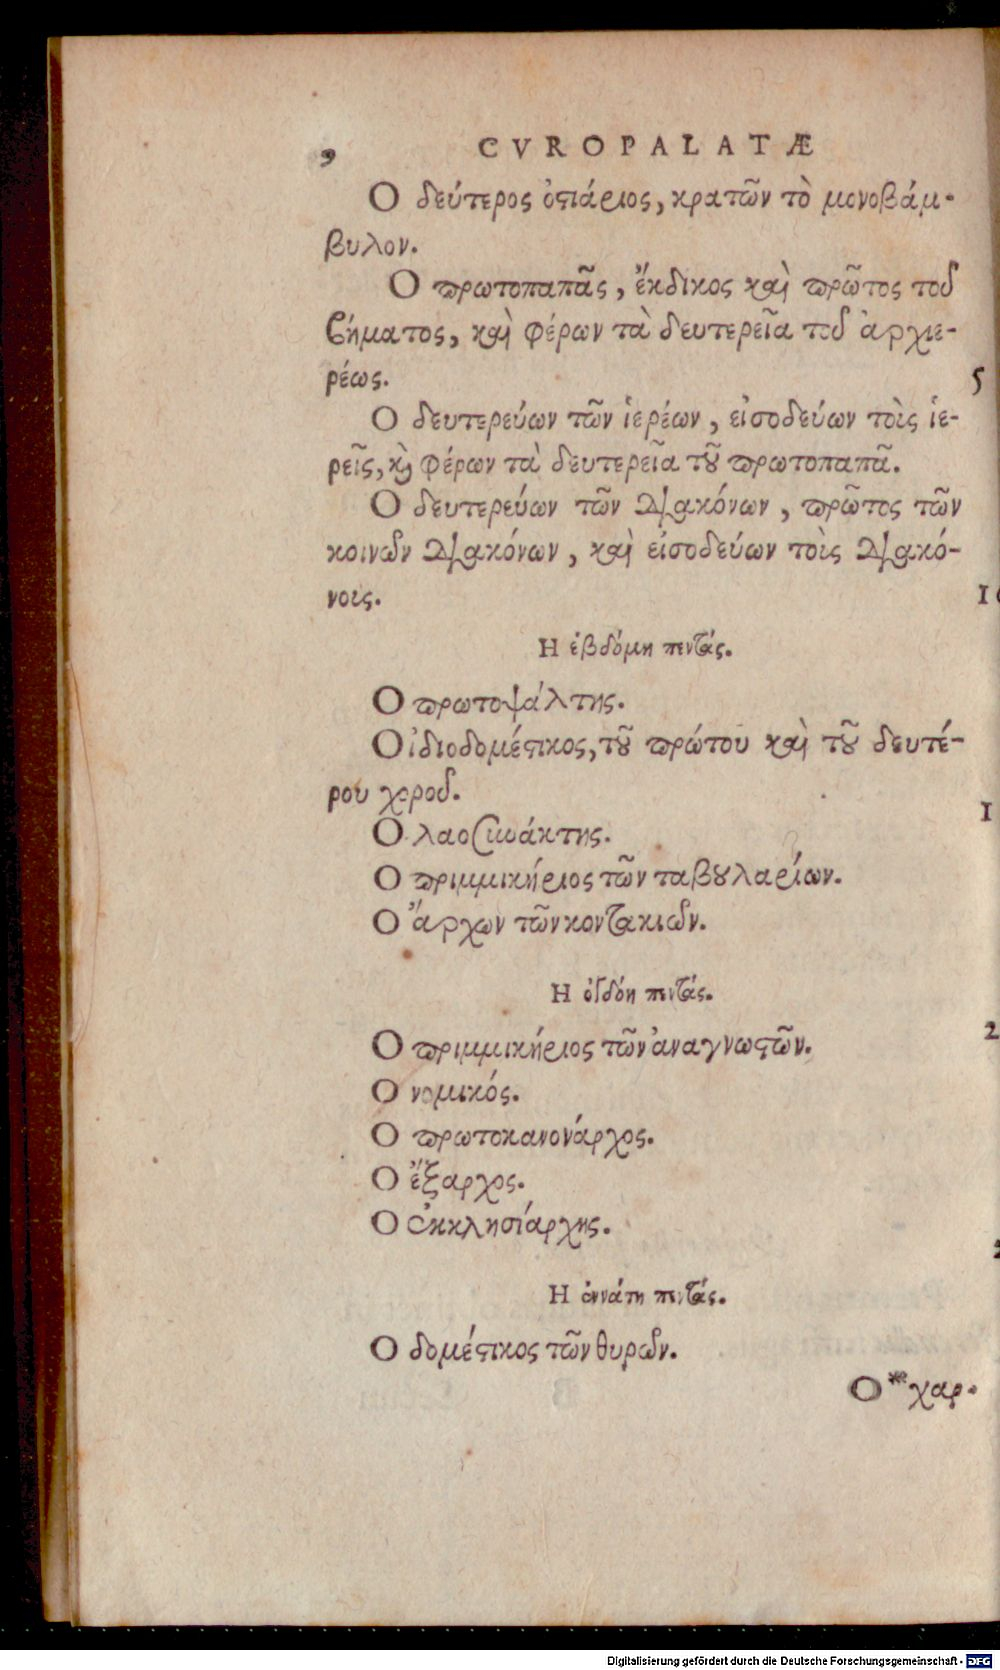 9 CVROPALATÆ
Ο δεύτερος ὀστιάριος, κρατῶν τὸ μονοβάμ-
βυλον.
Ο πρωτοπαπᾶς, ἔκδικος καὶ πρῶτος τοῦ
βήματος, καὶ φέρων τὰ δευτερεῖα τοῦ ἀρχιε-
ρέως.
5
Ο δευτερεύων τῶν ἱερέων, εἰσοδεύων τοὶς ἱε-
ρεῖς, καὶ φέρων τὰ δευτερεῖα τοῦ πρωτοπαπᾶ.
Ο δευτερεύων τῶν διακόνων, πρῶτος τῶν
κοινῶν διακόνων, καὶ εἰσοδεύων τοὶς διακό-
νοις.
Η ἑβδόμη πεντάς.
Ο πρωτοψάλτης.
Ο ἰδιοδομέστικος, τοῦ πρώτου καὶ τοῦ δευτέ-
ρου χοροῦ.
Ο λαοσυνάκτης.
Ο πριμμικήριος τῶν ταβουλαρίων.
Ο ἄρχων τῶν κοντακιῶν.
Η ὀγδόη πεντάς.
Ο πριμμικήριος τῶν ἀναγνωστῶν.
Ο νομικός.
Ο πρωτοκανονάρχος.
Ο ἔξαρχος.
Ο ἐκκλησίαρχης.
Η ἐννάτη πεντάς.
Ο δομέστικος τῶν θυρῶν.
Ο * χαρ-
Digitalisierung gefördert durch die Deutsche Forschungsgemeinschaft - DFG